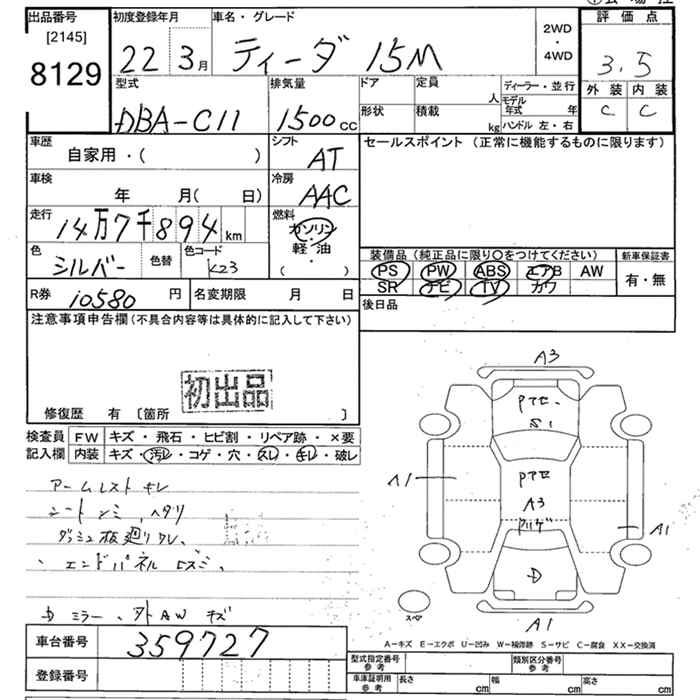 出品番号
[2145]
8129
初度登録年月
22 3月
車名・グレード
ティーダ 15M
2WD
・
4WD
評価点
3.5
外装 内装
C C
型式
DBA-C11
排気量
1500cc
ドア
形状
定員
人
積載
kg
ディーラー・並行
モデル年式 年
ハンドル 左・右
車歴
自家用・( )
シフト
AT
セールスポイント (正常に機能するものに限ります)
車検
年 月(日)
冷房
AAC
走行
14万7千894km
燃料
ガソリン
軽・油
( )
色
シルバー
色替
色コード
K23
装備品 (純正品に限り〇をつけてください)
PS PW ABS エアB AW
SR ナビ TV カワ
新車保証書
有・無
R券 10580円
名変期限 月 日
後日品
注意事項申告欄(不具合内容等は具体的に記入して下さい)
初出品
修復歴 有 [箇所 ]
検査員記入欄
FW キズ・飛石・ヒビ割・リペア跡・×要
内装 キズ・汚レ・コゲ・穴・スレ・キレ・破レ
アームレスト キレ
シート シミ、ヘタリ
エンドパネル
ミラー、
AW キズ
A3
Pアセ
S1
Pアセ
A3
A1
A1
D
スペア
A1
A-キズ E-エクボ U-凹み W-補修跡 S-サビ C-腐食 XX-交換済
車台番号 359727
登録番号
型式指定番号
参考
類別区分番号
参考
車庫証明用
参考
長さ cm 幅 cm 高さ cm